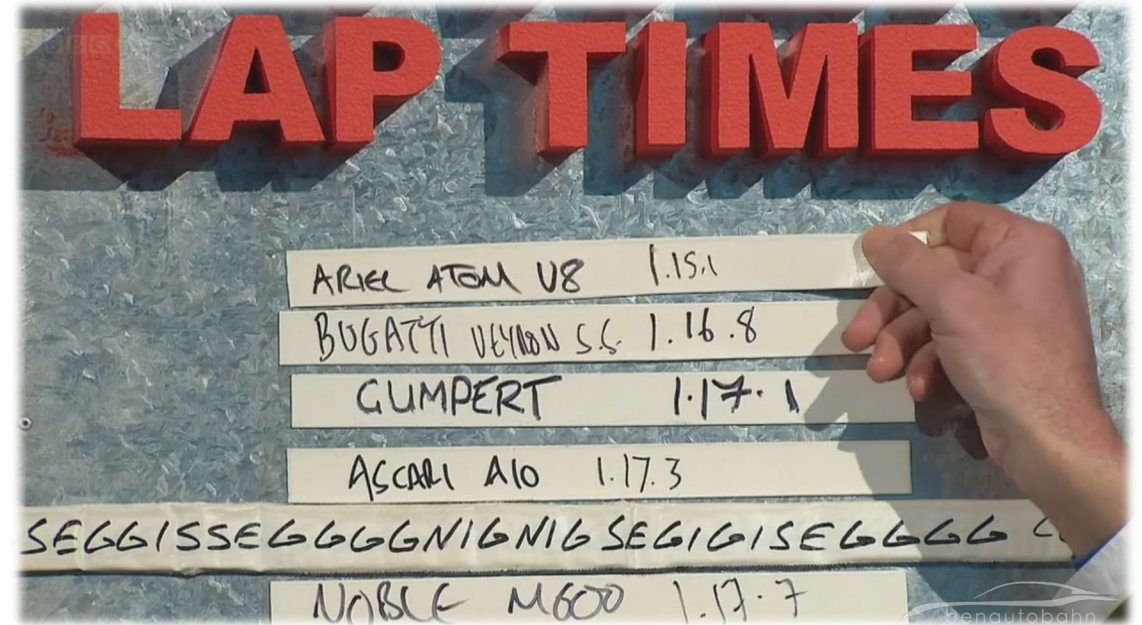 BBC
LAP TIMES
ARIEL ATOM V8 1.15.1
BUGATTI VEYRON S.S. 1.16.8
GUMPERT 1.17.1
ASCARI A10 1.17.3
SEGGISSEGGGGNIGNIGSEGIGISEGGGG
NOBLE M600 1.17.7
benautobahn